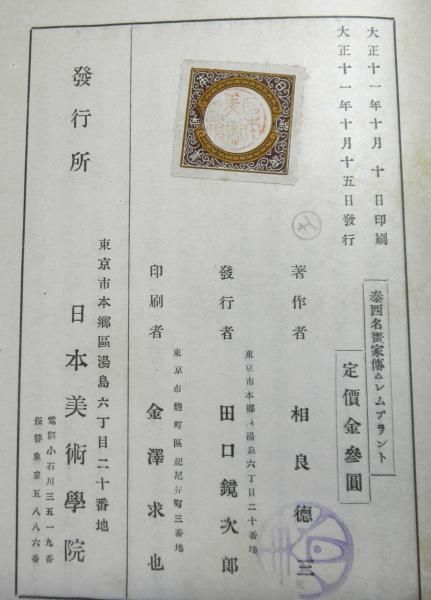 大正十一年十月十日印刷
大正十一年十月十五日發行
泰西名畫家傳レムブラント
定價金參圓
著作者 相良德三
東京市本鄉區湯島六丁目二十番地
發行者 田口鏡次郎
東京市麴町區紀尾井町三番地
印刷者 金澤求也
東京市本鄉區湯島六丁目二十番地
發行所 日本美術學院
電話小石川三五一九番
振替東京五八八六番